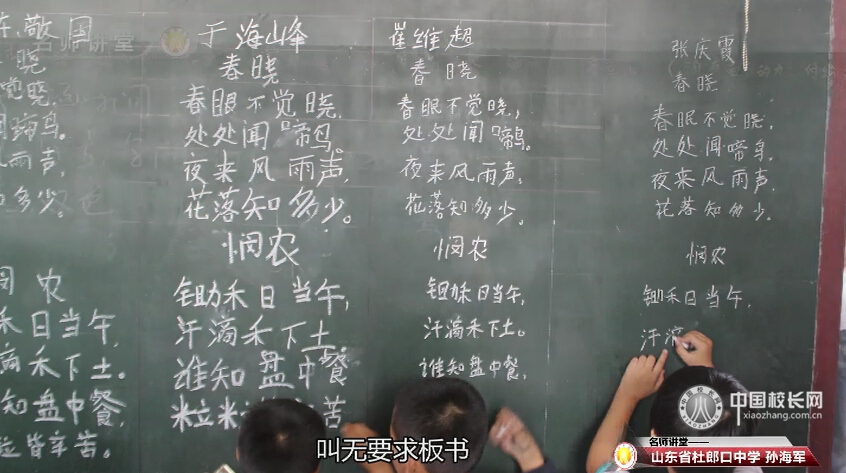 敬国
晓
觉晓,
鸟。
雨声,
多少。
农
禾日当午,
禾下土。
知盘中餐,
皆辛苦。
于海峰
春晓
春眼不觉晓,
处处闻啼鸟。
夜来风雨声,
花落知多少。
悯农
锄禾日当午,
汗滴禾下土,
谁知盘中餐
粒
苦
崔维超
春晓
春眠不觉晓,
处处闻啼鸟。
夜来风雨声,
花落知多少。
悯农
锄禾日当午,
汗滴禾下土。
谁知盘中餐,
张庆霞
春晓
春眠不觉晓,
处处闻啼鸟,
夜来风雨声,
花落知多少.
悯农
锄禾日当午,
汗滴
名师讲堂
叫无要求板书
中国校长网
xiaozhang.com.cn
名师讲堂——
山东省杜郎口中学 孙海军